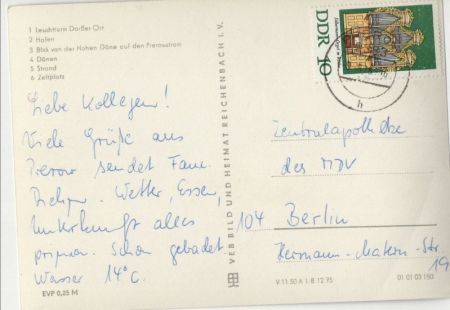 1 Leuchtturm Darßer Ort
2 Hafen
3 Blick von der Hohen Düne auf den Prerowstrom
4 Dünen
5 Strand
6 Zeltplatz
Liebe Kollegen!
Viele Grüße aus
Prerow sendet Fam.
Wetter, Essen,
Unterkunft alles
prima. Schon gebadet
Wasser 14°C.
EVP 0,25 M
VEB BILD UND HEIMAT REICHENBACH I. V.
DDR 10
h
Zentralapotheke
des MDV
104 Berlin
Hermann-Matern-Str.
19
V 11 50 A I/B 12/75
01 01 03 150